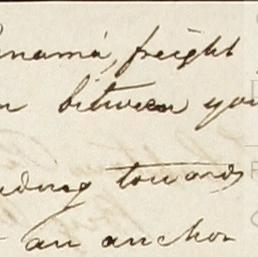 Panamá, freight
between you
towards
an anchor